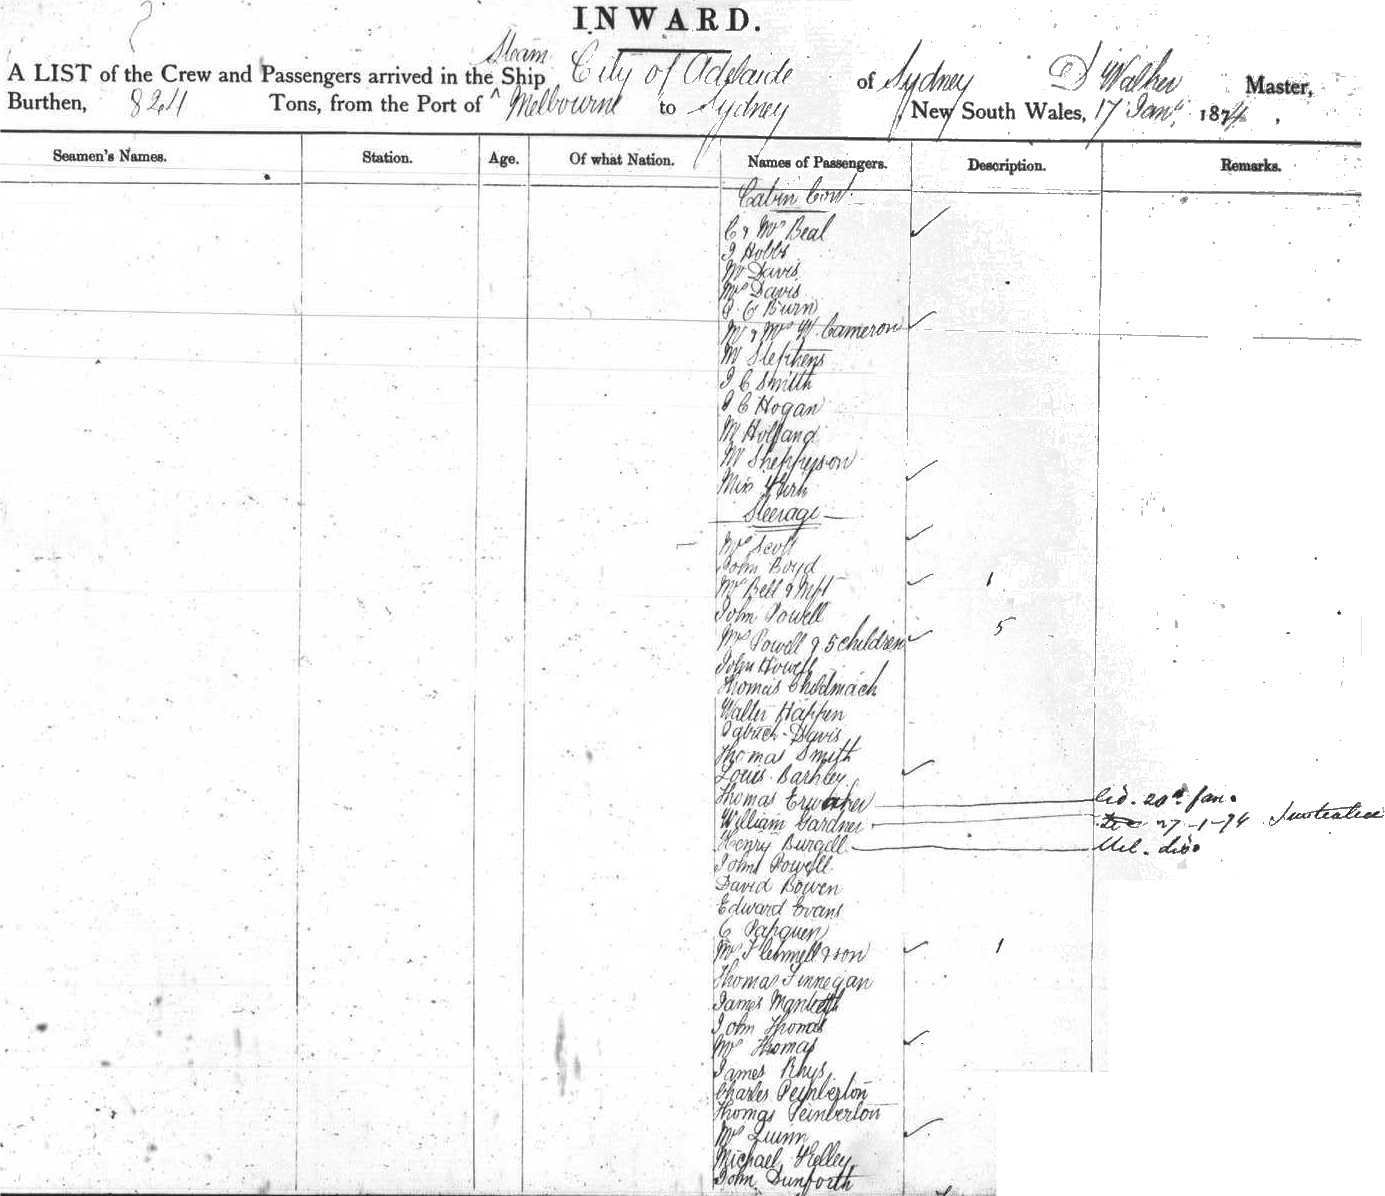 INWARD.
Steam
A LIST of the Crew and Passengers arrived in the Ship City of Adelaide of Sydney D Walker Master,
Burthen, 824 Tons, from the Port of ^ Melbourne to Sydney, New South Wales, 17 Jany. 1874,
Seamen's Names. Station. Age. Of what Nation. Names of Passengers. Description. Remarks.
Cabin Cont.
C & Mrs Beal
J Hobbs
Mr Davis
Mrs Davis
C Burn
Mr & Mrs Cameron
Mr Stephens
J C Smith
C Hogan
Mr Holland
Mr
Miss
Steerage
Mrs Scott
John Boyd
Mrs Bell & Inft 1
John Powell
Mrs Powell & 5 children 5
John Howell
Thomas
Walter Happen
Patrick Davis
Thomas Smith
Louis Barkley
Thomas 20th Jan.
William Gardner 27-1-74
Henry Burgell
John Powell
David Bowen
Edward Evans
C
Mrs & son 1
Thomas Finnegan
James
John Thomas
Mrs Thomas
James Rhys
Charles Pemberton
Thomas Pemberton
Mrs Quinn
Michael Kelley
John Dunforth